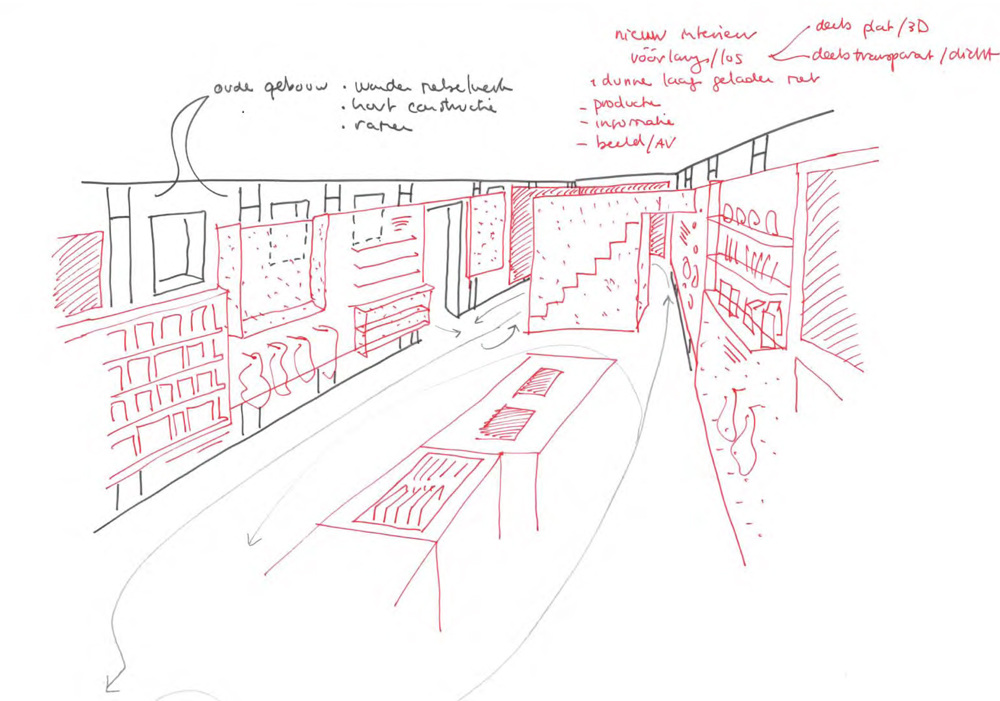 oude gebouw • wanden metselwerk
• hout constructie
• ramen
nieuw interieur
vóórlangs/los
deels plat/3D
deels transparant/dicht
• dunne laag geladen met
- producten
- informatie
- beeld/AV